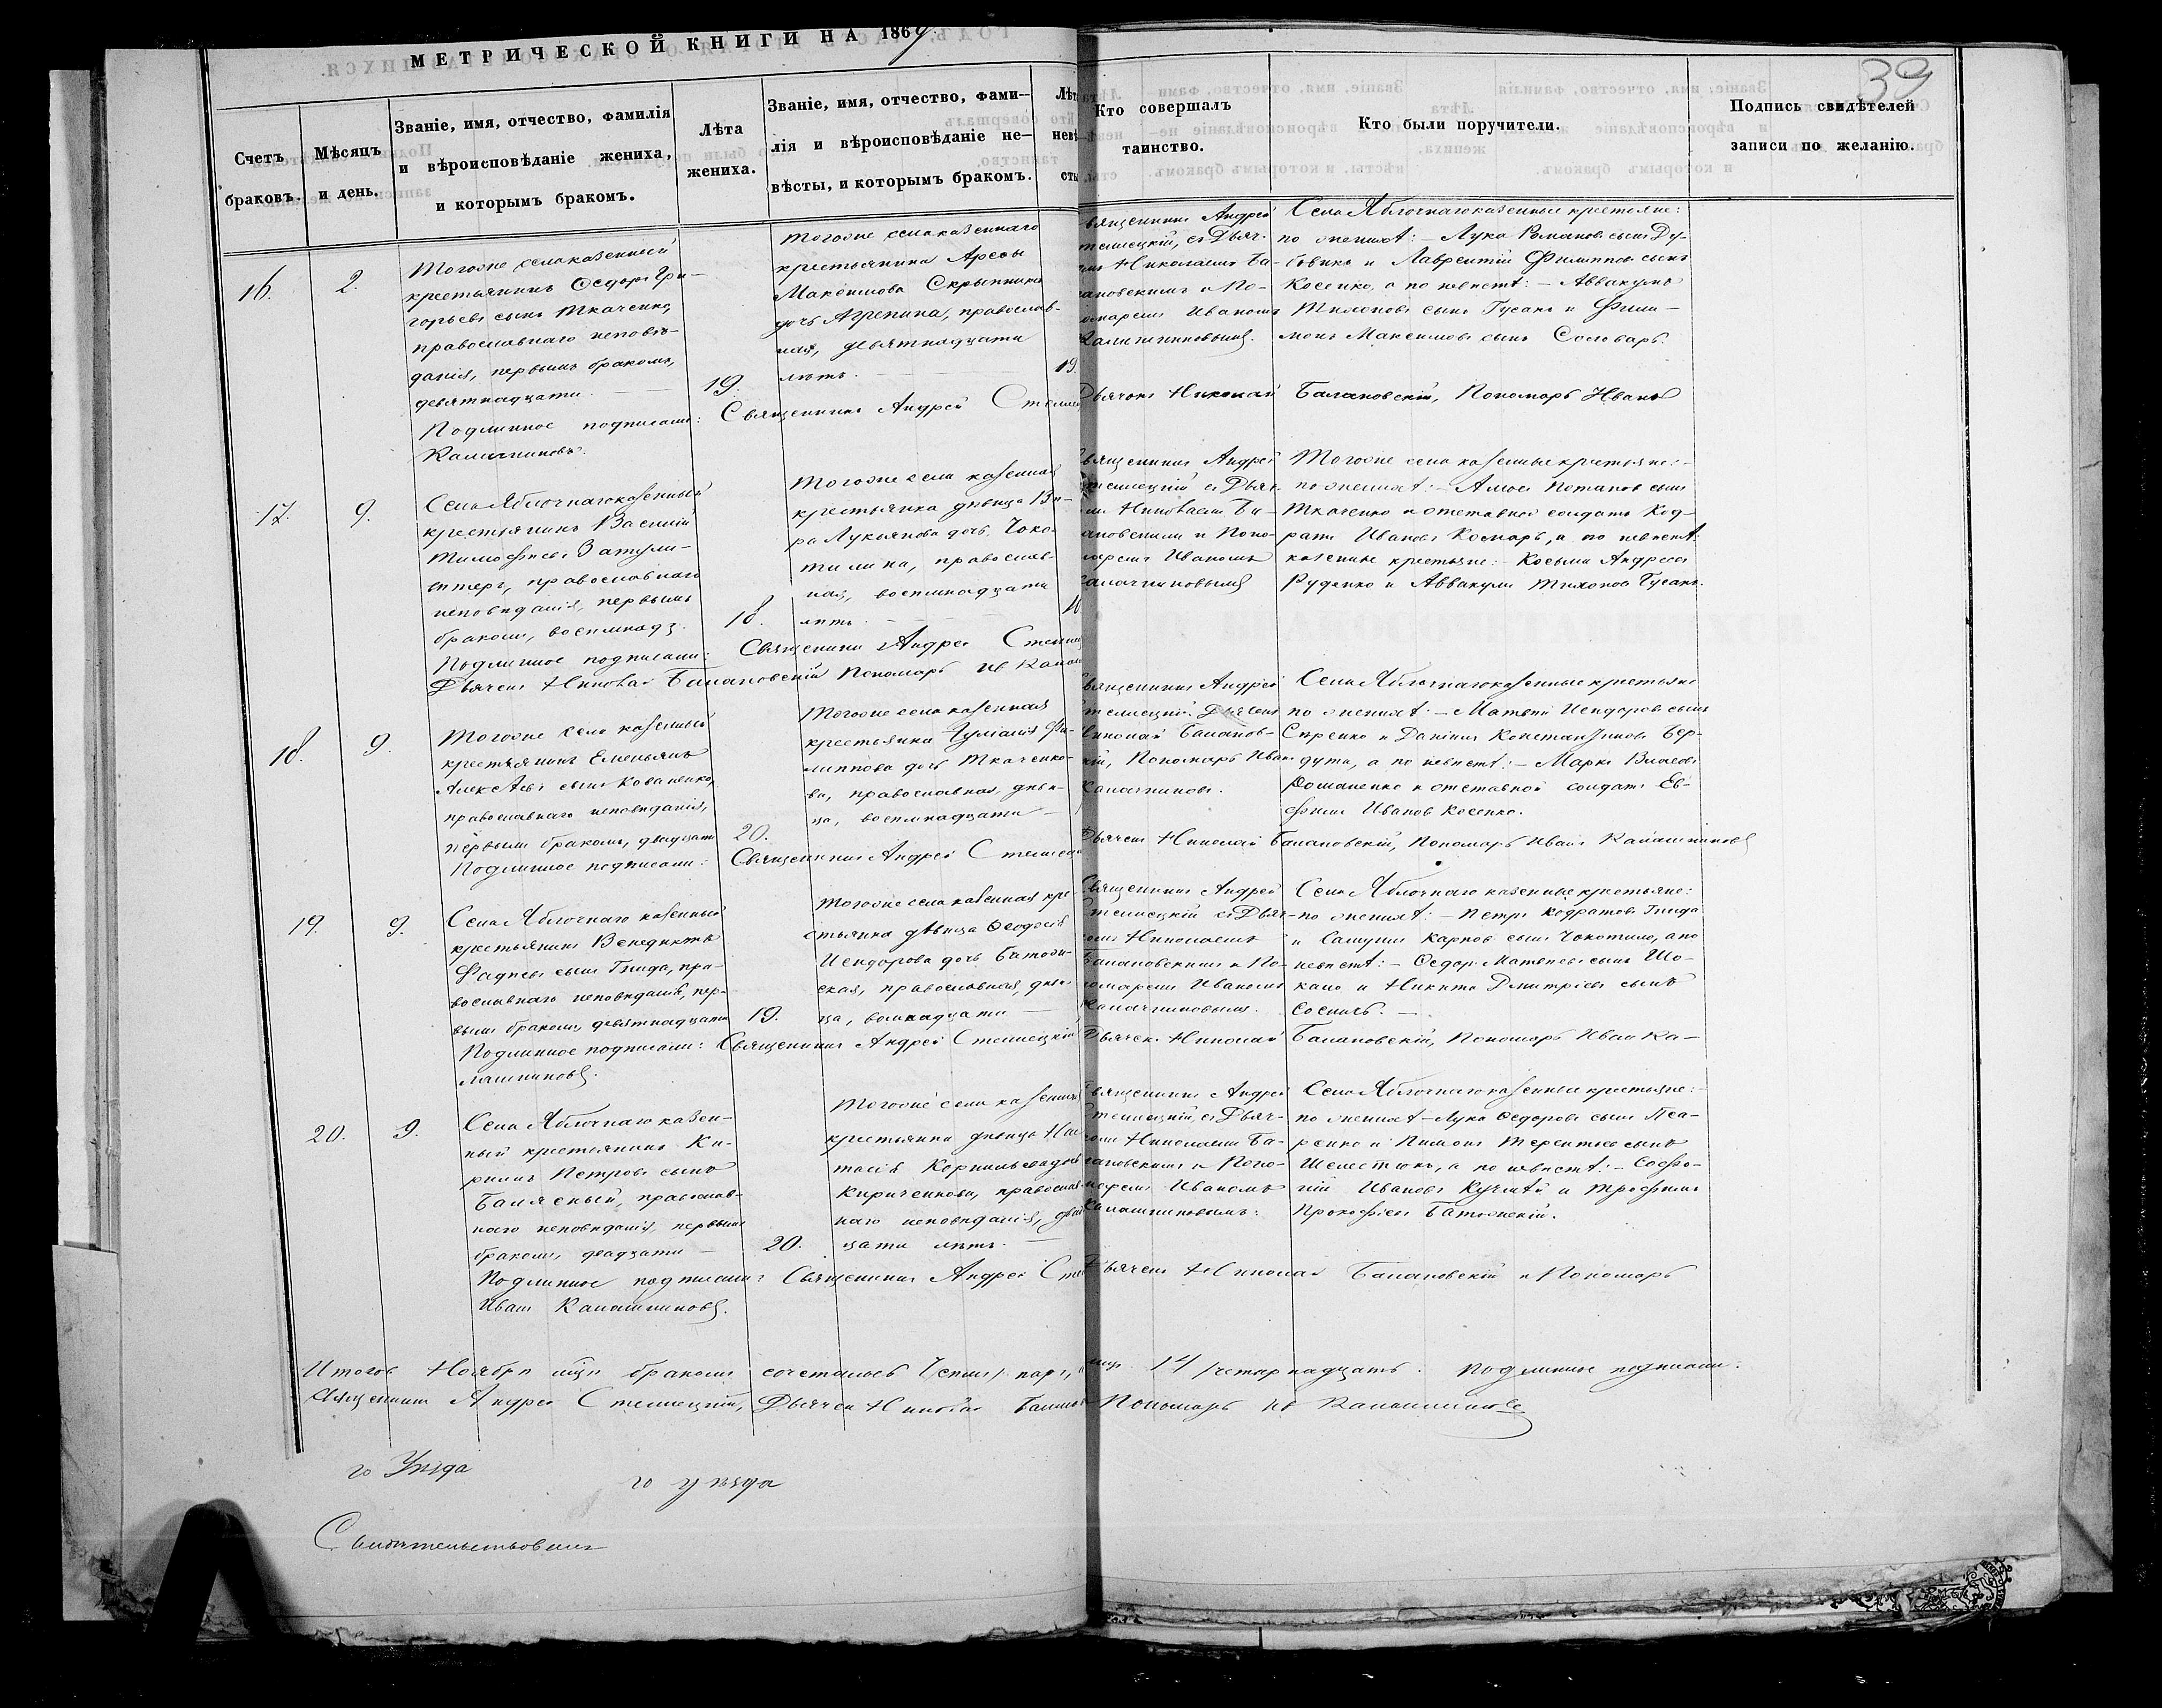 МЕТРИЧЕСКОЙ КНИГИ НА 1869.
39
Счетъ браковъ.
Мѣсяцъ и день.
Званіе, имя, отчество, фамилія
и вѣроисповѣданіе жениха,
и которымъ бракомъ.
Лѣта
жениха.
Званіе, имя, отчество, фами-
лія и вѣроисповѣданіе не-
вѣсты, и которымъ бракомъ.
Лѣт
невѣ
сты
Кто совершалъ
таинство.
Кто были поручители.
Подпись свидѣтелей
записи по желанію.
16.
2.
Тогоже села казенный
крестьянинъ Ѳедоръ Гри-
горьевъ сынъ Ткаченко,
православнаго исповѣ-
данія, первымъ бракомъ,
девятнадцати
19.
Тогоже села казеннаго
крестьянина
Максимова Скрыпника
дочь Агрепина, православ-
ная, девятнадцати
лѣтъ.
19.
вященникъ Андрей
телецкій, съ Дьяч-
Николаемъ Ба-
ановскимъ и По-
номаремъ Иваномъ
Калашниковымъ.
Села Яблочнаго казенные крестьяне:
по женихѣ: – Лука Романовъ сынъ Ду-
бовикъ и Лаврентій Филиповъ сынъ
Косенко, а по невѣстѣ: – Аввакумъ
Тихоновъ сынъ Гусакъ и Фили-
монъ Максимовъ сынъ
Подлинное подписали: Священникъ Андрей Дьячокъ Николай Балановскій, Пономарь Иванъ
Калашниковъ.
17.
9.
Села Яблочнаго казенный
крестьянинъ Василій
Тимофѣевъ Затули-
вѣтеръ, православнаго
исповѣданія, первымъ
бракомъ, восемнадц.
18.
Тогоже села казенная
крестьянка дѣвица Вѣ-
ра Лукьянова дочь Чоко-
тилина, православ-
ная, восемнадцати
лѣтъ.
вященникъ Андрей
съ Дьяч-
Николаемъ Ба-
ановскимъ и Поно-
маремъ Иваномъ
Калашниковымъ
Тогоже села казенные крестьяне:
по женихѣ: – Амосъ Потаповъ сынъ
Ткаченко и отставной солдатъ Код-
ратъ Ивановъ а по невѣстѣ:
казенные крестьяне: – Косьма Андреевъ
Руденко и Аввакумъ Тихоновъ Гусакъ.
Подлинное подписали: Священникъ Андрей
Дьячекъ Николай Балановскій Пономарь Ив Калаш
18.
9.
Тогоже села казенный
крестьянинъ Емельянъ
Алексѣевъ сынъ Коваленко,
православнаго исповѣданія,
первымъ бракомъ, двадцати
20.
Тогоже села казенная
крестьянка Фи-
липпова дочь Ткаченко-
ва, православная, дѣви-
ца, восемнадцати
вященникъ Андрей
Дьячекъ
Николай Баланов-
кій, Пономарь Иванъ
Калашниковъ.
Села Яблочнаго казенные крестьяне
по женихѣ: – Матвѣй Исидоровъ сынъ
и Даніилъ Константиновъ Бер-
дута, а по невѣстѣ: – Марко Власовъ
Романенко и отставной солдатъ Ев-
фимъ Ивановъ Косенко.
Подлинное подписали: Священникъ Андрей Дьячекъ Николай Балановскій, Пономарь Иванъ Калашниковъ
19.
9.
Села Яблочнаго казенный
крестьянинъ Венедиктъ
Фадѣевъ сынъ Гнида, пра-
вославнаго исповѣданія, пер-
вымъ бракомъ, девятнадцати
19.
Тогоже села казенная кре-
стьянка дѣвица Ѳеодосія
Исидорова дочь Батожи-
ская, православная, дѣви-
ца, восмнадцати
Священникъ Андрей
съ Дьяч-
комъ Николаемъ
Балановскимъ и По-
номаремъ Иваномъ
Калашниковымъ.
Села Яблочнаго казенные крестьяне:
по женихѣ: – Петръ Кодратовъ Гнида
и Самуилъ Карповъ сынъ Чокотило, а по
невѣстѣ: – Ѳедоръ Матвѣевъ сынъ Шо-
кало и Никита Дмитріевъ сынъ
Подлинное подписали: Священникъ Андрей Дьячекъ Николай Балановскій, Пономарь Иванъ Ка-
лашниковъ.
20.
9.
Села Яблочнаго казен-
ный крестьянинъ Ки-
рилъ Петровъ сынъ
Балясный, православ-
наго исповѣданія, первымъ
бракомъ, двадцати
20.
Тогоже села казенная
крестьянка дѣвица На-
талія Корнильева дочь
Кириченкова, православ
наго исповѣданія, двад
цати лѣтъ.
вященникъ Андрей
съ Дьяч-
комъ Николаемъ Ба-
лановскимъ и Поно-
маремъ Иваномъ
Калашниковымъ.
Села Яблочнаго казенные крестьяне:
по женихѣ – Лука Ѳедоровъ сынъ Пса-
ренко и Пименъ Терентьевъ сынъ
Шелестюкъ, а по невѣстѣ: – Софро-
ній Ивановъ и Трофимъ
Прокофіевъ Батожскій.
Подлинное подписали: Священникъ Андрей Дьячекъ Николай Балановскій и Пономарь
Иванъ Калашниковъ.
Итого въ Ноябрѣ мцѣ бракомъ сочеталось 14 четырнадцать. Подлинное подписали:
Священникъ Андрей Дьячекъ Николай Балан Пономарь Ив Калашниковъ
го Уѣзда
го уѣзда
Свидѣтельствовалъ